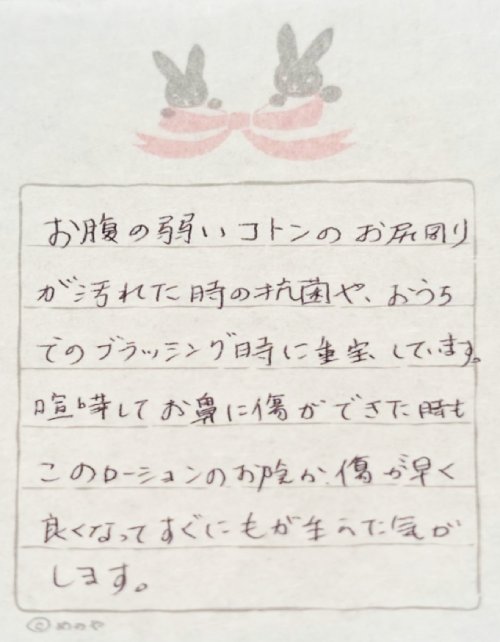 お腹の弱いコトンのお尻周り
が汚れた時の抗菌や、おうち
でのブラッシング時に重宝しています。
喧嘩してお鼻に傷ができた時も
このローションのお陰か、傷が早く
良くなってすぐにもが生えた気が
します。
©めのや